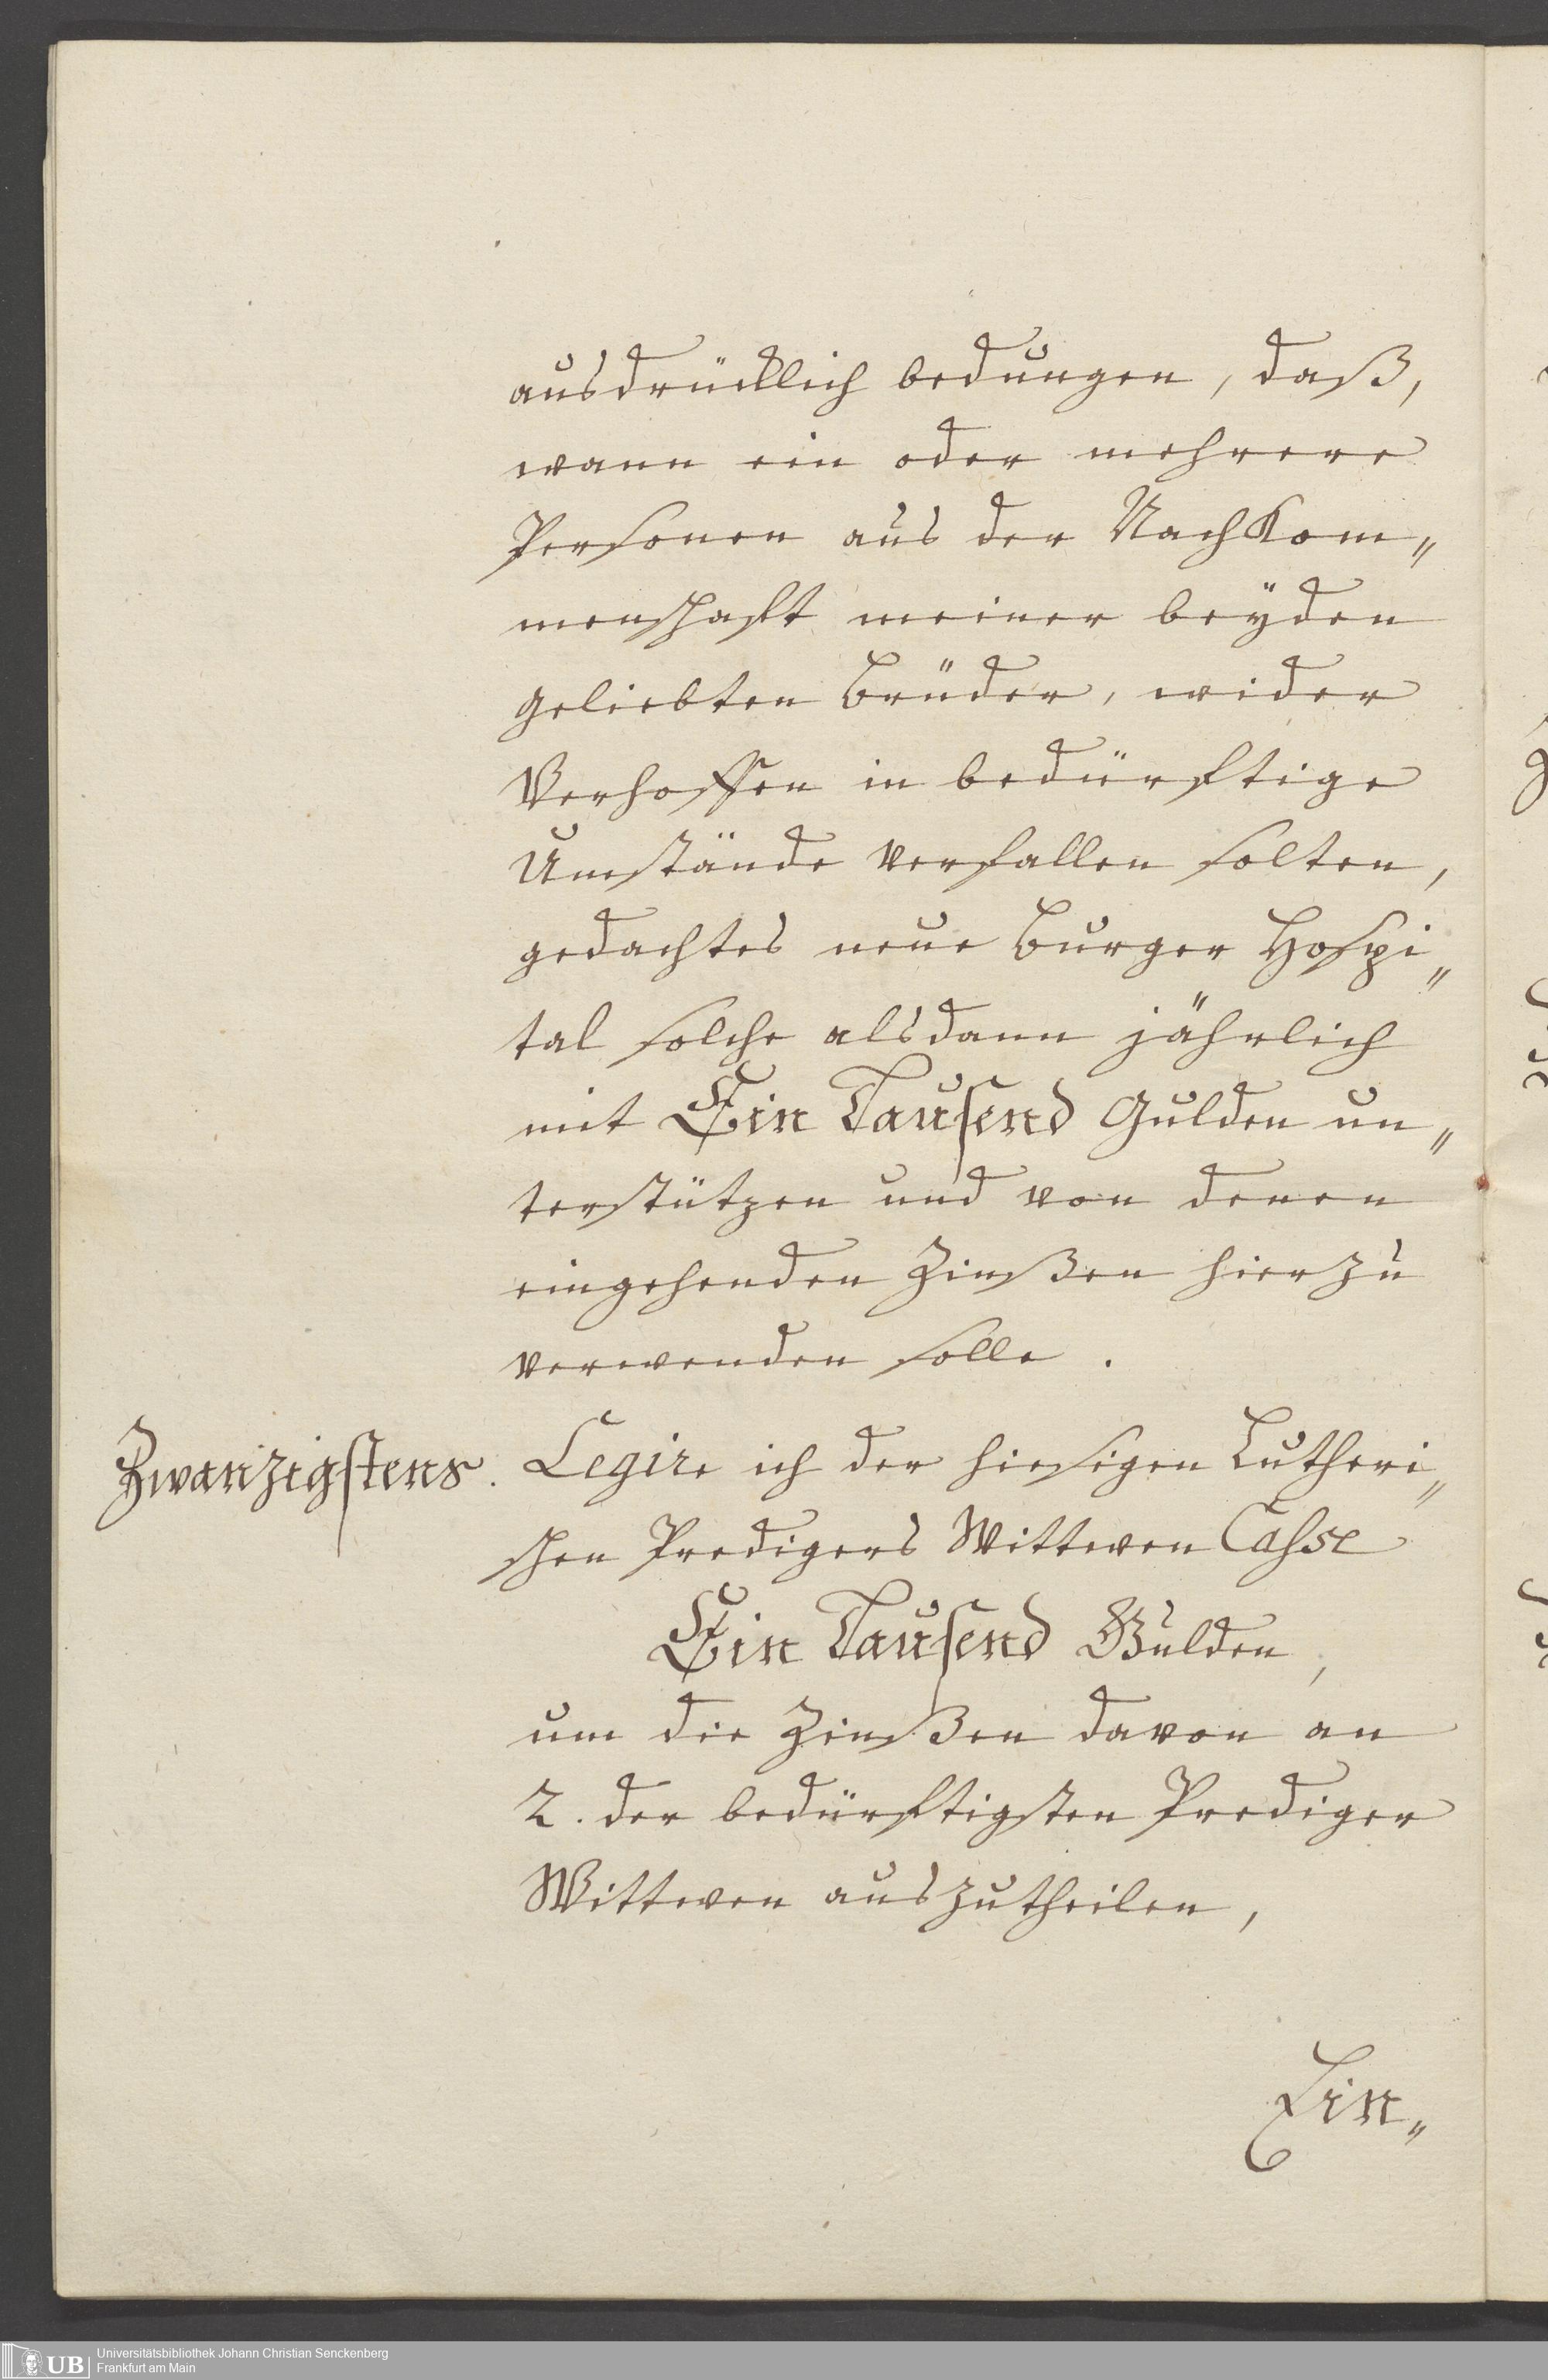 ausdrücklich bedungen, daß,
wann ein oder mehrere
Personen aus der Nachkom„
menschaft meiner beÿden
geliebten Brüder, wider
Verhoffen in bedürftige
Umstände verfallen solten,
gedachtes neue Burger Hospi„
tal solche alsdann jährlich
mit Ein Tausend Gulden un„
terstützen und von denen
eingehenden Zinßen hierzu
verwenden solle.
Zwanzigstens. Legire ich der hiesigen Lutheri„
schen Predigers Wittwen Casse
Ein Tausend Gulden,
um die Zinßen davon an
2. der bedürftigsten Prediger
Wittwen auszutheilen,
Ein„
UB Universitätsbibliothek Johann Christian Senckenberg
Frankfurt am Main